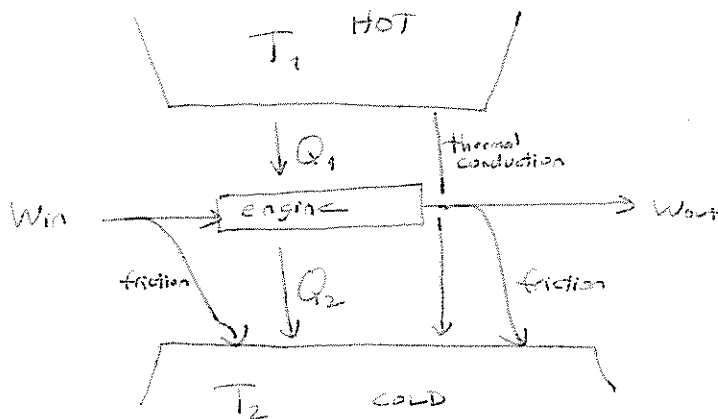 HOT
T₁
Q₁
thermal
conduction
Win
engine
Wout
friction
Q₂
friction
T₂
COLD